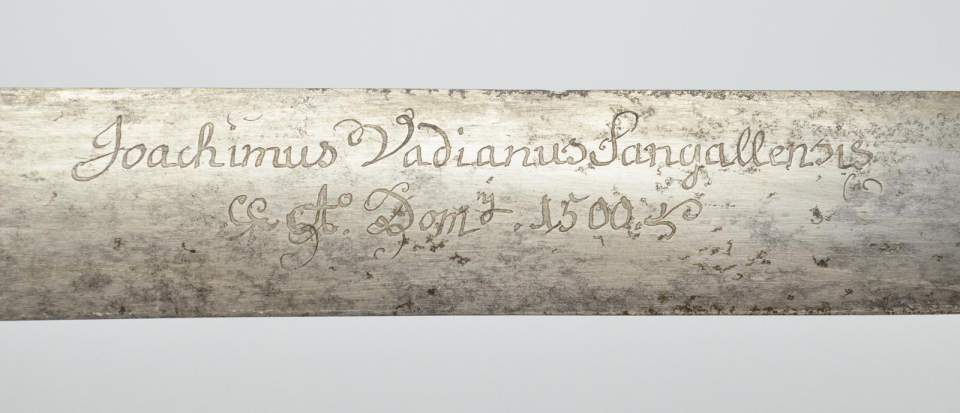 Joachimus Vadianus Sangallensis
Domy. 1500.